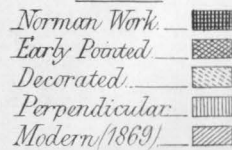 Norman Work
Early Pointed
Decorated
Perpendicular
Modern (1869)